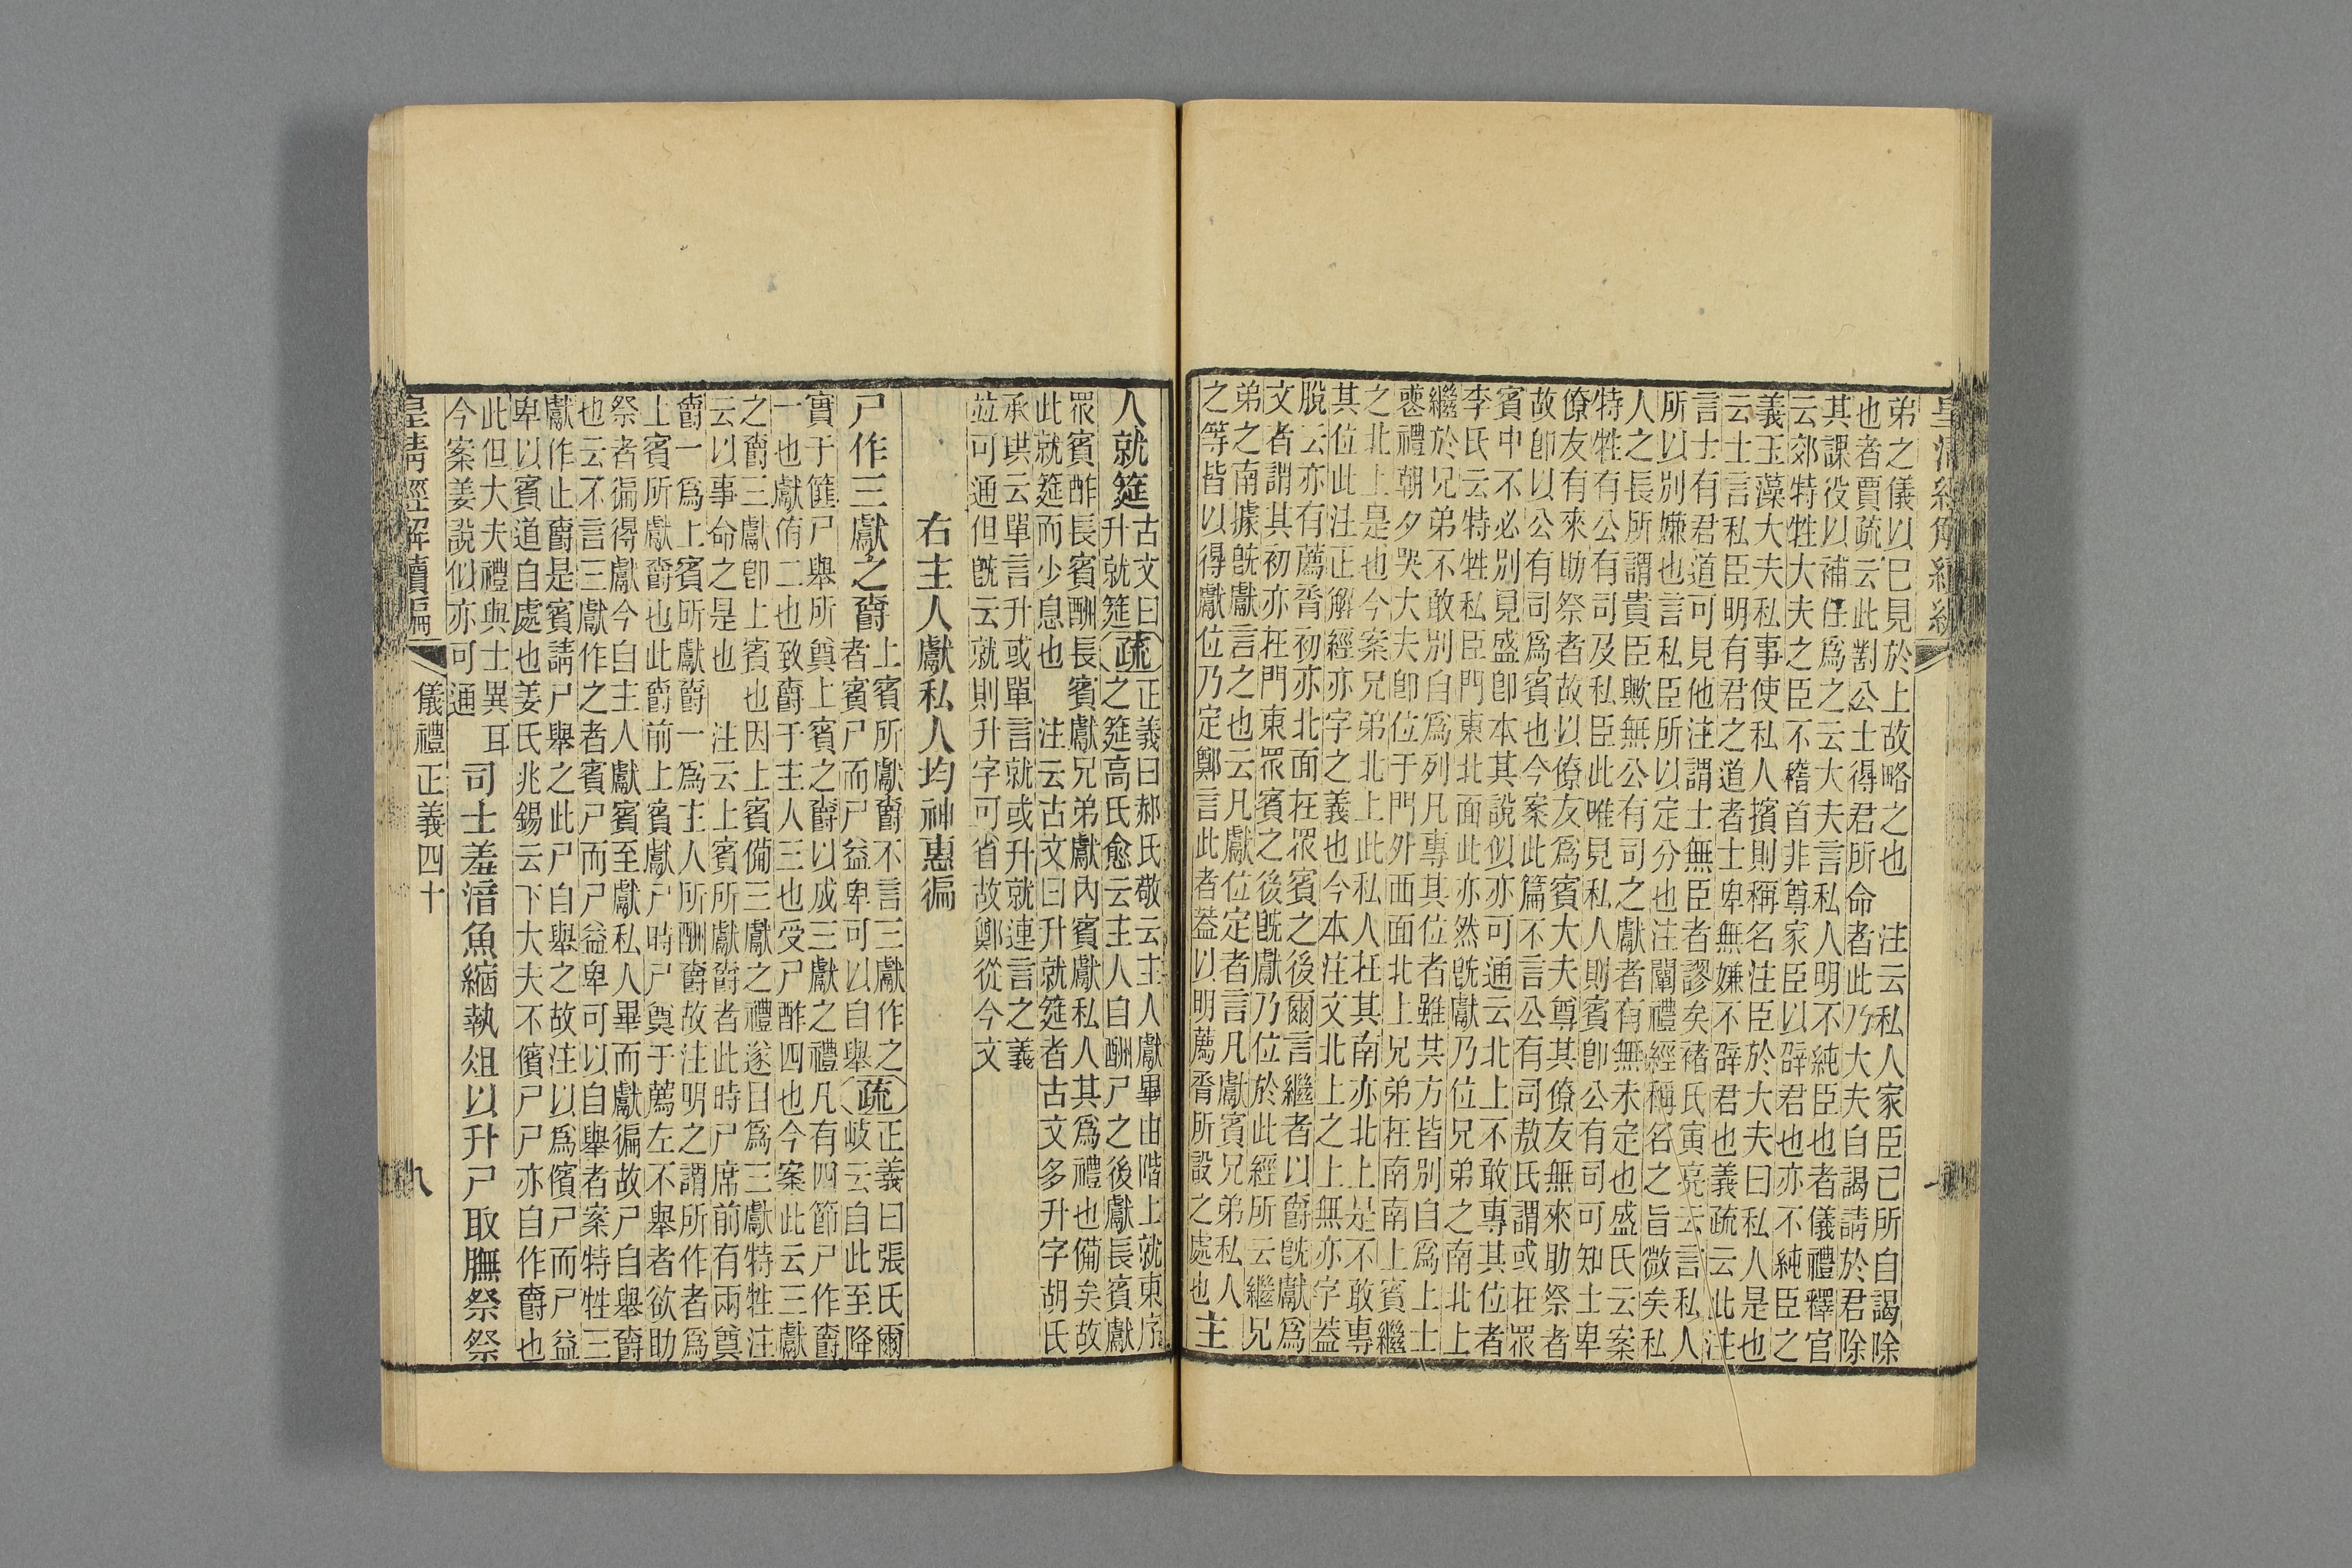 弟之儀以巳見於上故略之也　注云私人家臣己所自謁除
也者賈疏云此對公士得君所命者此乃大夫自謁請於君除
其課役以補任爲之云大夫言私人明不純臣也者儀禮釋官
云郊特牲大夫之臣不稽首非尊家臣以辟君也亦不純臣之
義玉藻大夫私事使私人擯則稱名注臣於大夫曰私人是也
云士言私臣明有君之道者士卑無嫌不辟君也義疏云此注
言士有君道可見他注謂士無臣者謬矣褚氏寅亮云言私人
所以別嫌也言私臣所以定分也注闡禮經稱名之旨微矣私
人之長所謂貴臣歟無公有司之獻者有無未定也盛氏云案
特牲有公有司及私臣此唯見私人則賓卽公有司可知士卑
僚友有來助祭者故以僚友爲賓大夫尊其僚友無來助祭者
故卽以公有司爲賓也今案此篇不言公有司敖氏謂或在眾
賓中不必別見盛卽本其說似亦可通云北上不敢專其位者
李氏云特牲私臣門東北面此亦然旣獻乃位兄弟之南北上
繼於兄弟不敢別自爲列凡專其位者雖其方皆別自爲上士
喪禮朝夕哭大夫卽位于門外西面北上兄弟在南南上賓繼
之北上是也今案兄弟北上此私人在其南亦北上是不敢專
其位此注正解經亦字之義也今本注文北上之上無亦字蓋
脫云亦有薦脀初亦北面在眾賓之後爾言繼者以爵旣獻爲
文者謂其初亦在門東眾賓之後旣獻乃位於此經所云繼兄
弟之南據旣獻言之也云凡獻位定者言凡獻賓兄弟私人
之等皆以得獻位乃定鄭言此者葢以明薦脀所設之處也主
人就筵古文曰升就筵疏正義曰郝氏敬云主人獻畢由階上就東序
之筵高氏愈云主人自酬尸之後獻長賓獻
眾賓酢長賓酬長賓獻兄弟獻內賓獻私人其爲禮也備矣故
此就筵而少息也　注云古文曰升就筵者古文多升字胡氏
承珙云單言升或單言就或升就連言之義
竝可通但旣云就則升字可省故鄭從今文
右主人獻私人均神惠徧
尸作三獻之爵上賓所獻爵不言三獻作之者賓尸而尸益卑可以自舉疏正義曰張氏爾岐云自此至降
實于篚尸舉所奠上賓之爵以成三獻之禮凡有四節尸作爵
一也獻侑二也致爵于主人三也受尸酢四也今案此云三獻
之爵三獻卽上賓也因上賓備三獻之禮遂目爲三獻特牲注
云以事命之是也　注云上賓所獻爵者此時尸席前有兩奠
爵一爲上賓所獻爵一爲主人所酬爵故注明之謂所作者爲
上賓所獻爵也此爵前上賓獻尸時尸奠于薦左不舉者欲助
祭者徧得獻今自主人獻賓至獻私人畢而獻徧故尸自舉爵
也云不言三獻作之者賓尸而尸益卑可以自舉者案特牲三
獻作止爵是賓請尸舉之此尸自舉之故注以爲儐尸而尸益
卑以賓道自處也姜氏兆錫云下大夫不儐尸尸亦自作爵也
此但大夫禮與士異耳
今案姜說似亦可通司士羞湆魚縮執俎以升尸取膴祭祭
皇清經解續編　儀禮正義四十　八